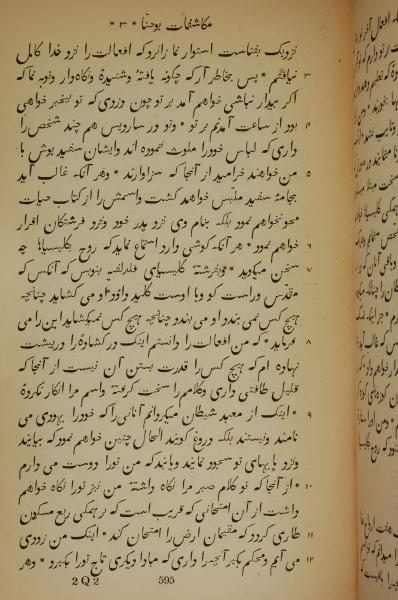 مکاشفات یوحنا * ۳ *
نزدیک بفناست استوار نما زانرو که افعالت را نزد خدا کامل
۳ نیافتم * پس بخاطر آر که چگونه یافتهٔ و شنیدهٔ و نگاه دار و توبه نما که
اگر بیدار نباشی خواهم آمد بر تو چون دزدی که تو بیخبر خواهی
۴ بود از ساعت آمدنم بر تو * و تو در ساردیس هم چند شخص را
داری که لباس خود را ملوث ننموده اند و ایشان سفید پوش با
۵ من خواهند خرامید از آنجا که سزاوارند * و هر آنکه غالب آید
بجامهٔ سفید ملبس خواهد گشت و اسمش را از کتاب حیات
محو نخواهم نمود بلکه بنام وی نزد پدر خود و نزد فرشتگان اقرار
۶ خواهم نمود * هر آنکه گوشی دارد استماع نماید که روح بکلیسیاها چه
۷ سخن میگوید * و بفرشتهٔ کلیسیای فلدلفیه بنویس که آنکس که
مقدس و راست که و با اوست کلید داؤد او می کشاید چنانچه
هیچ کس نمی بندد و او می بندد چنانچه هیچ کس نمیکشاید این را می
۸ فرماید * که من افعال ترا دانستم اینک در کشاده را در پیشت
نهاده ام که هیچ کس را قدرت بستن آن نیست از آنجا که
قلیل طاقتی داری و کلامم را سخت گرفتهٔ و اسم مرا انکار نکردهٔ
۹ * اینک از معبد شیطان میگردانم آنانی را که خود را یهودی می
نامند و نیستند بلکه دروغ گویند الحال چنین خواهم نمود که بیایند
و نزد پایهای تو سجود نمایند و بدانند که من ترا دوست می دارم
۱۰ * از آنجا که تو کلام صبر مرا نگاه داشتهٔ من نیز ترا نگاه خواهم
داشت از آن امتحانی که قریب است که بر همگی ربع مسکون
۱۱ طاری گردد که مقیمان ارض را امتحان کند * اینک من بزودی
۱۲ می آیم و محکم بگیر آنچه را داری که مبادا دیگری تاج ترا بگیرد * و هر
2 Q 2 595